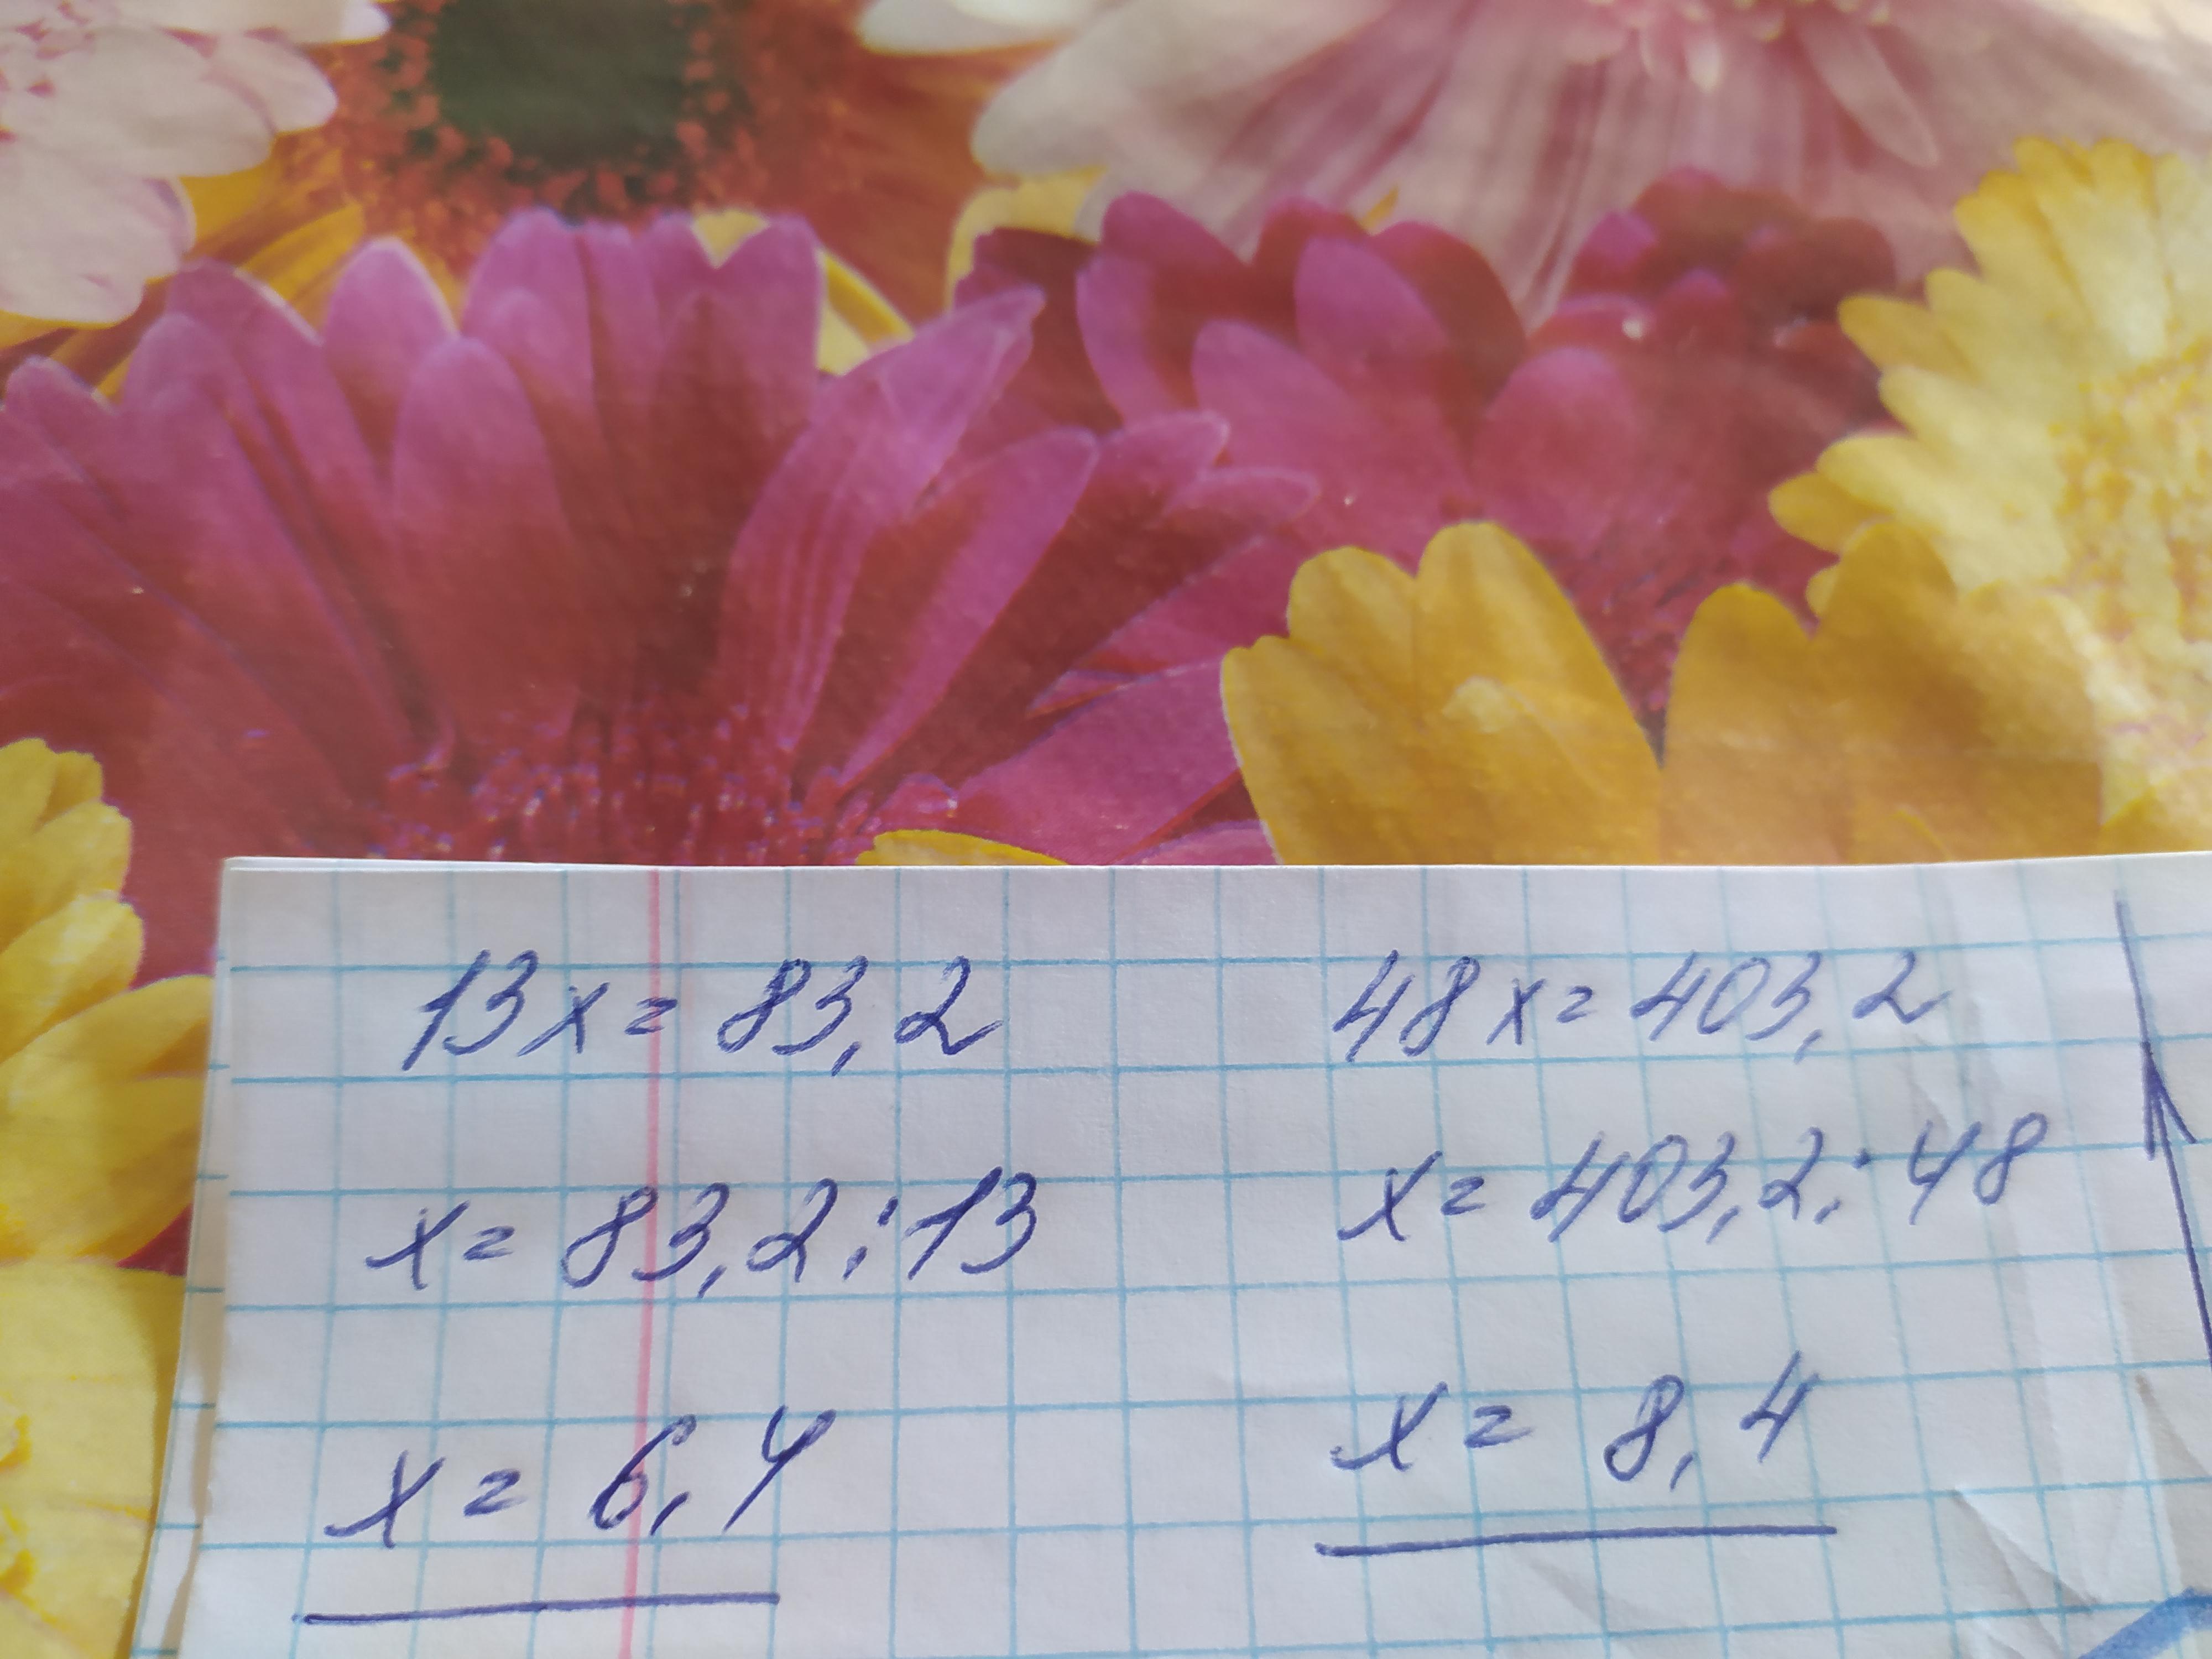 13x = 83,2
x = 83,2 : 13
x = 6,4
48x = 403,2
x = 403,2 : 48
x = 8,4